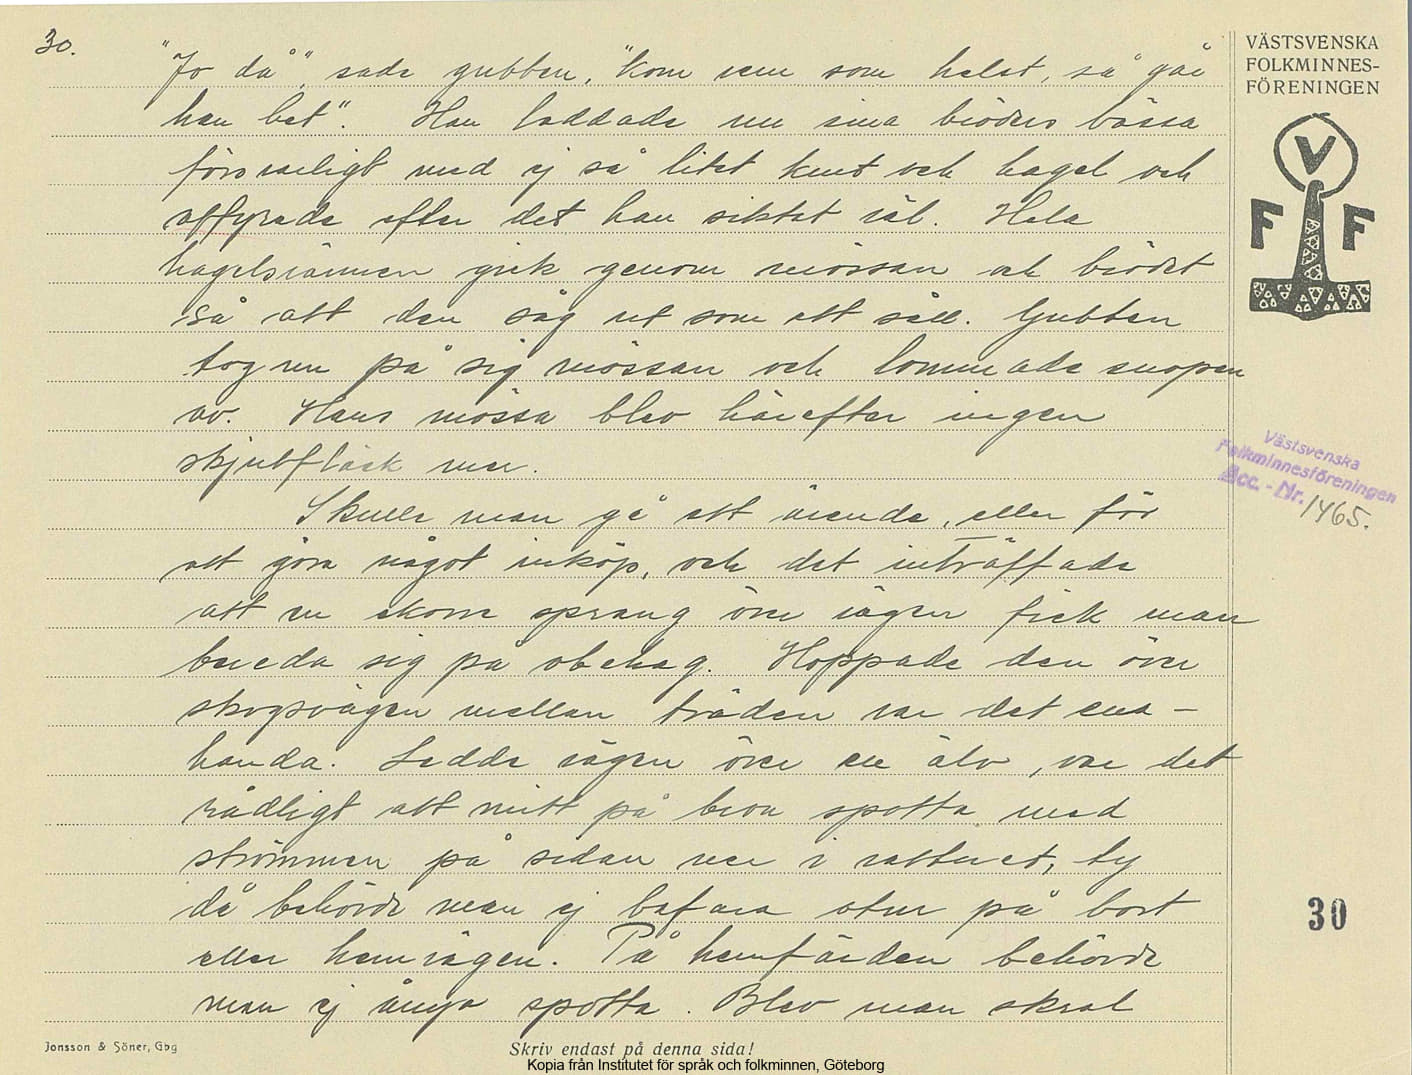 30.
"Jo då", sade gubben, "kom vem som helst, så går
han bet". Han laddade nu sina bröders bössa
försvarligt med ej så litet krut och hagel och
affyrade efter det han siktat väl. Hela
hagelsvärmen gick genom mössan och brödet
så att den såg ut som ett såll. Gubben
tog nu på sig mössan och lommade snopen
av. Hans mössa blev härefter ingen
skjutfläck mer.
Skulle man gå ett ärende, eller för
att göra något inköp, och det inträffade
att en ekorre sprang över vägen fick man
bereda sig på obehag. Hoppade den över
skogsvägen mellan träden var det ena-
handa. Ledde vägen över en älv, var det
rådligt att mitt på bron spotta med
strömmen på sidan ner i vattnet, ty
då behövde man ej befara otur på bort
eller hemvägen. På hemfärden behövde
man ej ånyo spotta. Blev man skral
VÄSTSVENSKA
FOLKMINNES-
FÖRENINGEN
V
F F
Västsvenska
Folkminnesföreningen
Acc. - Nr. 1465.
30
Jonsson & Söner, Gbg
Skriv endast på denna sida!
Kopia från Institutet för språk och folkminnen, Göteborg